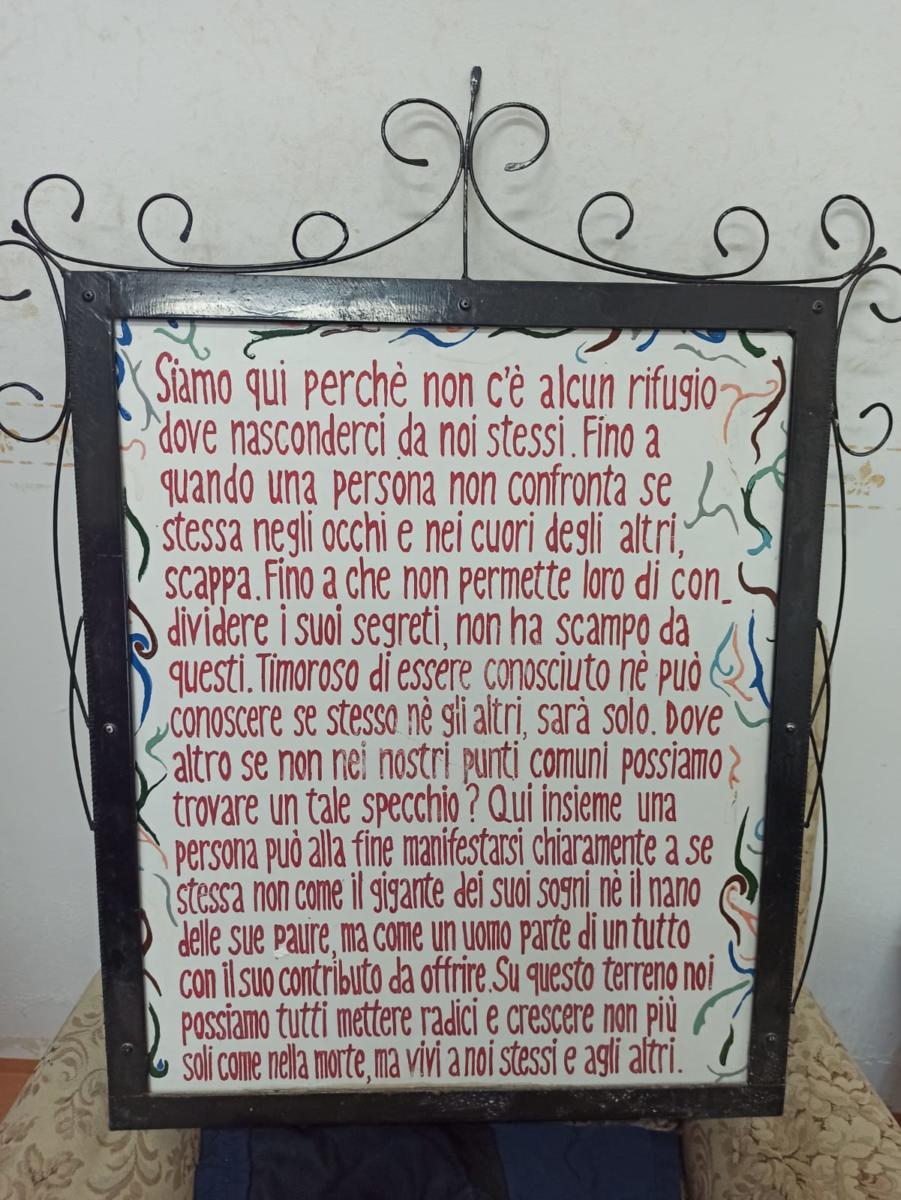 Siamo qui perchè non c'è alcun rifugio
dove nasconderci da noi stessi. Fino a
quando una persona non confronta se
stessa negli occhi e nei cuori degli altri,
scappa. Fino a che non permette loro di con_
dividere i suoi segreti, non ha scampo da
questi. Timoroso di essere conosciuto nè può
conoscere se stesso nè gli altri, sarà solo. Dove
altro se non nei nostri punti comuni possiamo
trovare un tale specchio? Qui insieme una
persona può alla fine manifestarsi chiaramente a se
stessa non come il gigante dei suoi sogni nè il nano
delle sue paure, ma come un uomo parte di un tutto
con il suo contributo da offrire. Su questo terreno noi
possiamo tutti mettere radici e crescere non più
soli come nella morte, ma vivi a noi stessi e agli altri.